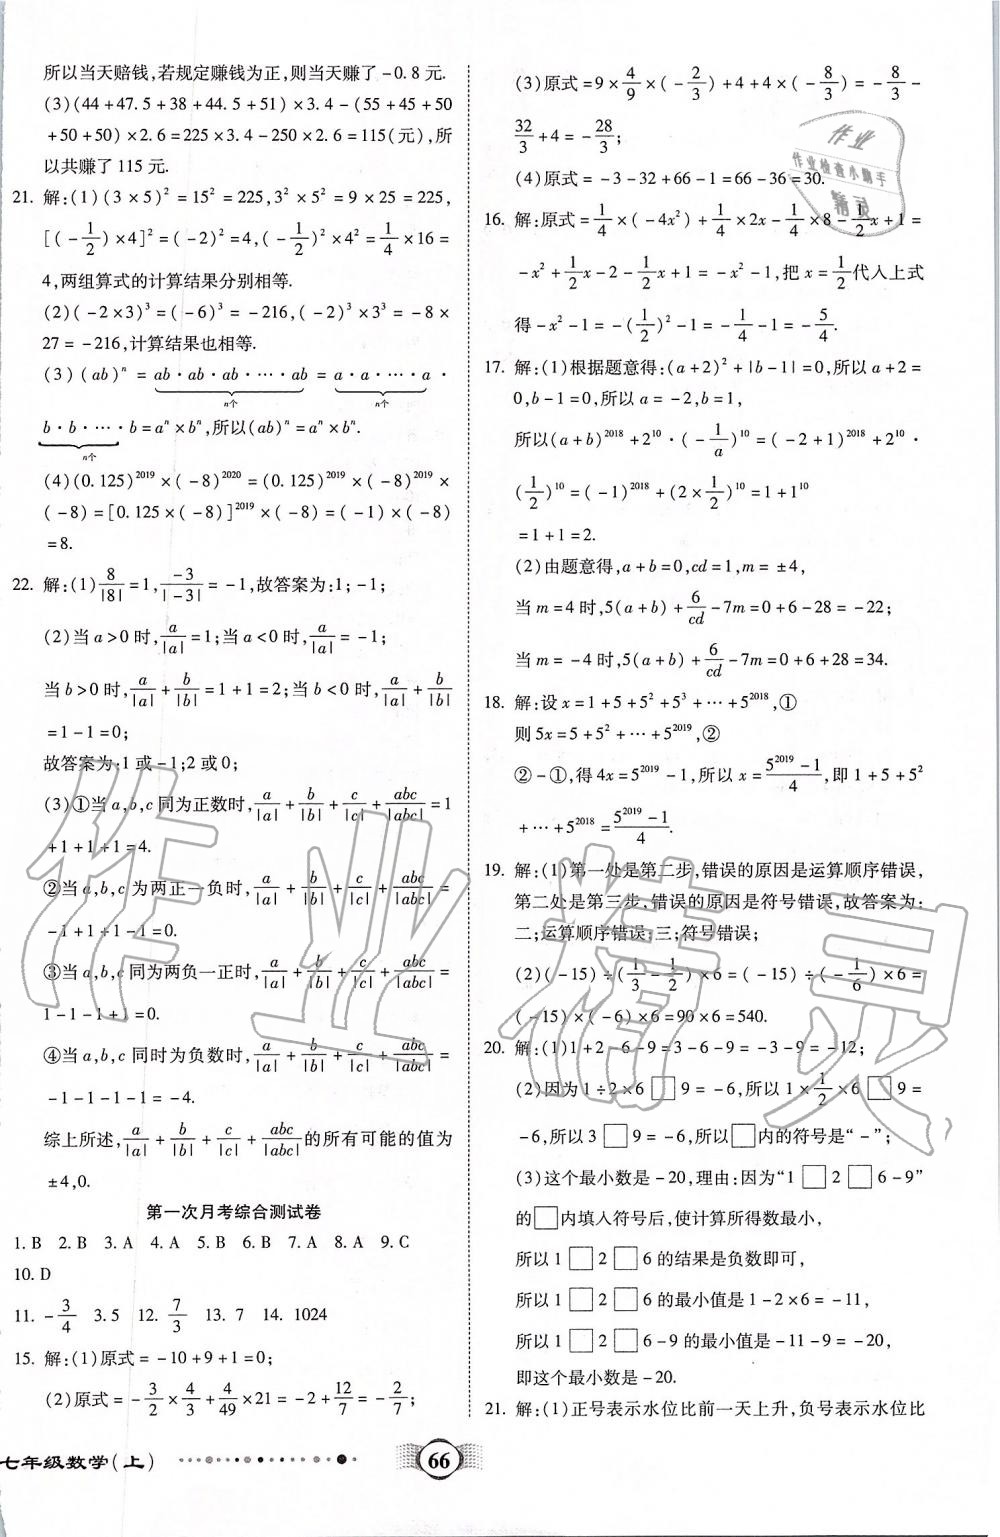 所以当天赔钱,若规定赚钱为正,则当天赚了-0.8元.
(3)(44+47.5+38+44.5+51)×3.4-(55+45+50
+50+50)×2.6=225×3.4-250×2.6=115(元),所
以共赚了115元.
21. 解:(1)(3×5)²=15²=225,3²×5²=9×25=225,
[(-1/2)×4]²=(-2)²=4,(-1/2)²×4²=1/4×16=
4,两组算式的计算结果分别相等.
(2)(-2×3)³=(-6)³=-216,(-2)³×3³=-8×
27=-216,计算结果也相等.
(3)(ab)ⁿ=ab·ab·ab·⋯·ab=a·a·⋯·a·
n个 n个
b·b·⋯·b=aⁿ×bⁿ,所以(ab)ⁿ=aⁿ×bⁿ.
n个
(4)(0.125)²⁰¹⁹×(-8)²⁰²⁰=(0.125)²⁰¹⁹×(-8)²⁰¹⁹×
(-8)=[0.125×(-8)]²⁰¹⁹×(-8)=(-1)×(-8)
=8.
22. 解:(1)8/|8|=1,-3/|-3|=-1,故答案为:1;-1;
(2)当a>0时,a/|a|=1;当a<0时,a/|a|=-1;
当b>0时,a/|a|+b/|b|=1+1=2;当b<0时,a/|a|+b/|b|
=1-1=0;
故答案为:1或-1;2或0;
(3)①当a,b,c同为正数时,a/|a|+b/|b|+c/|c|+abc/|abc|=1
+1+1+1=4.
②当a,b,c为两正一负时,a/|a|+b/|b|+c/|c|+abc/|abc|=
-1+1+1-1=0.
③当a,b,c同为两负一正时,a/|a|+b/|b|+c/|c|+abc/|abc|=
1-1-1+1=0.
④当a,b,c同时为负数时,a/|a|+b/|b|+c/|c|+abc/|abc|=
-1-1-1-1=-4.
综上所述,a/|a|+b/|b|+c/|c|+abc/|abc|的所有可能的值为
±4,0.
第一次月考综合测试卷
1.B 2.B 3.A 4.A 5.B 6.B 7.A 8.A 9.C
10.D
11. -3/4 3.5 12. 7/3 13. 7 14. 1024
15. 解:(1)原式=-10+9+1=0;
(2)原式=-3/2×4/3+4/49×21=-2+12/7=-2/7;
(3)原式=9×4/9×(-2/3)+4+4×(-8/3)=-8/3-
32/3+4=-28/3;
(4)原式=-3-32+66-1=66-36=30.
16. 解:原式=1/4×(-4x²)+1/4×2x-1/4×8-1/2x+1=
-x²+1/2x-2-1/2x+1=-x²-1,把x=1/2代入上式
得-x²-1=-(1/2)²-1=-1/4-1=-5/4.
17. 解:(1)根据题意得:(a+2)²+|b-1|=0,所以a+2=
0,b-1=0,所以a=-2,b=1,
所以(a+b)²⁰¹⁸+2¹⁰·(-1/a)¹⁰=(-2+1)²⁰¹⁸+2¹⁰·
(1/2)¹⁰=(-1)²⁰¹⁸+(2×1/2)¹⁰=1+1¹⁰
=1+1=2.
(2)由题意得,a+b=0,cd=1,m=±4,
当m=4时,5(a+b)+6/cd-7m=0+6-28=-22;
当m=-4时,5(a+b)+6/cd-7m=0+6+28=34.
18. 解:设x=1+5+5²+5³+⋯+5²⁰¹⁸,①
则5x=5+5²+⋯+5²⁰¹⁹,②
②-①,得4x=5²⁰¹⁹-1,所以x=(5²⁰¹⁹-1)/4,即1+5+5²
+⋯+5²⁰¹⁸=(5²⁰¹⁹-1)/4.
19. 解:(1)第一处是第二步,错误的原因是运算顺序错误,
第二处是第三步,错误的原因是符号错误,故答案为:
二;运算顺序错误;三;符号错误;
(2)(-15)÷(1/3-1/2)×6=(-15)÷(-1/6)×6=
(-15)×(-6)×6=90×6=540.
20. 解:(1)1+2-6-9=3-6-9=-3-9=-12;
(2)因为1÷2×6□9=-6,所以1×1/2×6□9=
-6,所以3□9=-6,所以□内的符号是“-”;
(3)这个最小数是-20,理由:因为“1□2□6-9”
的□内填入符号后,使计算所得数最小,
所以1□2□6的结果是负数即可,
所以1□2□6的最小值是1-2×6=-11,
所以1□2□6-9的最小值是-11-9=-20,
即这个最小数是-20.
21. 解:(1)正号表示水位比前一天上升,负号表示水位比
七年级数学(上)
66
作业
作业检查小助手
精灵
作业精灵